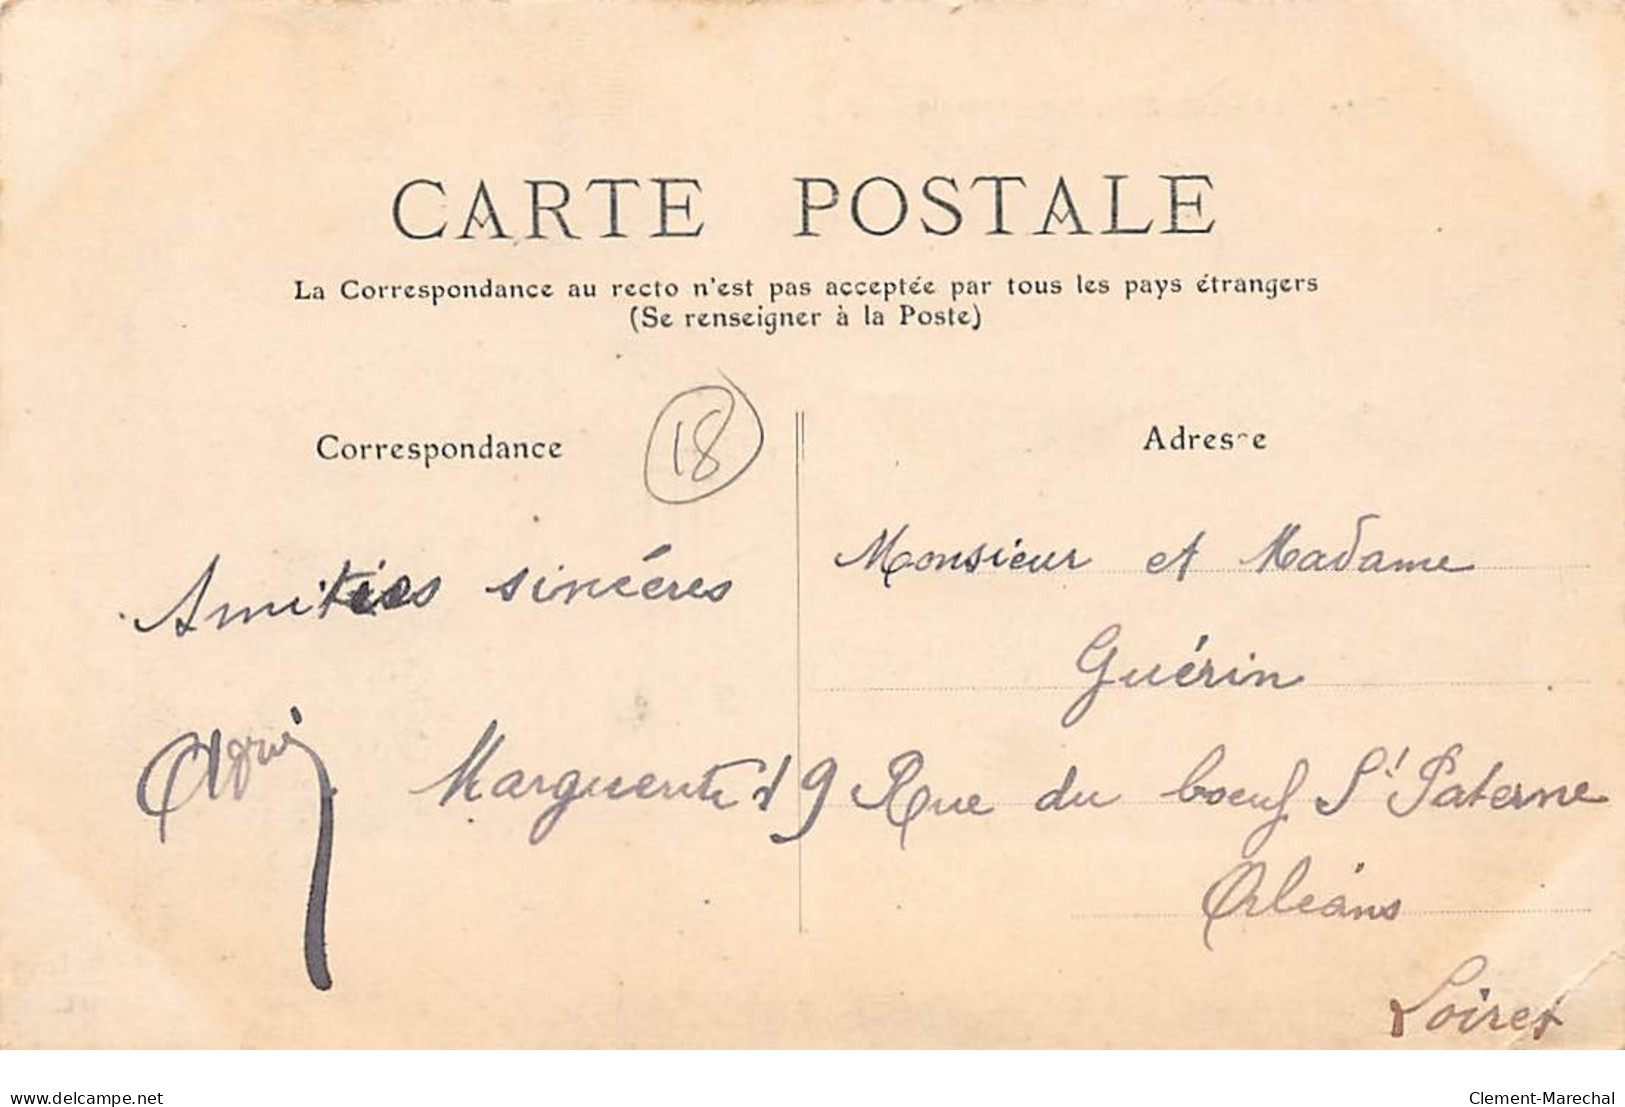 CARTE POSTALE
La Correspondance au recto n'est pas acceptée par tous les pays étrangers
(Se renseigner à la Poste)
Correspondance
18
Amitiés sincères
Marguerite
Adresse
Monsieur et Madame
Guérin
19 Rue du boeuf St Paterne
Orléans
Loiret
delcampe.net
Clement-Marechal